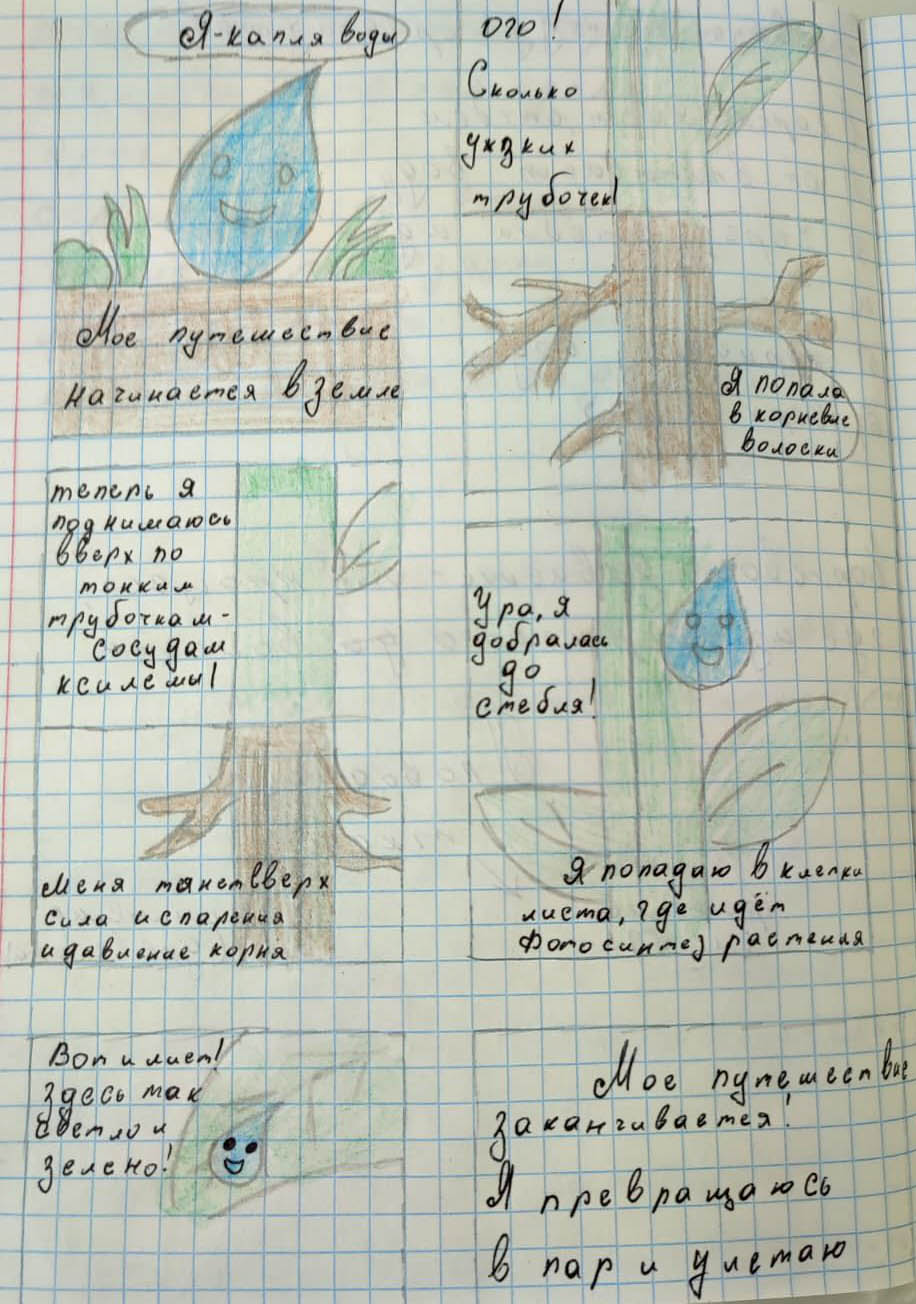 Я-капля воды
Мое путешествие
начинается в земле
ого!
Сколько
узких
трубочек!
Я попала
в корневые
волоски
теперь я
поднимаюсь
вверх по
тонким
трубочкам-
сосудам
ксилемы!
Меня тянет вверх
сила испарения
и давление корня
Ура, я
добралась
до
стебля!
Я попадаю в клетки
листа, где идёт
фотосинтез растения
Вот и лист!
Здесь так
светло и
зелено!
Мое путешествие
заканчивается!
Я превращаюсь
в пар и улетаю